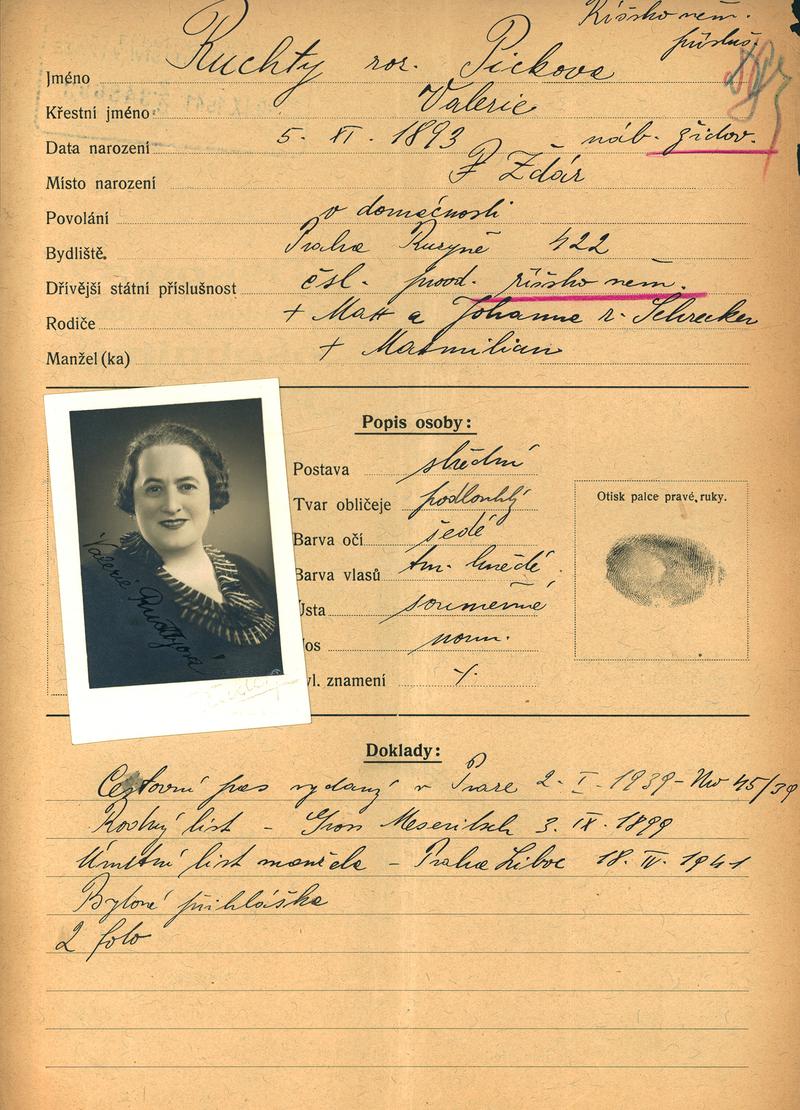 Říšsko něm.
přísluš.
Jméno Ruchty roz. Pickova
Křestní jméno Valerie
Data narození 5. XI. 1893 náb. židov.
Místo narození Žďár
Povolání v domácnosti
Bydliště Praha Ruzyně 422
Dřívější státní příslušnost čsl. říšsko něm.
Rodiče + Max a Johanna r. Schrecker
Manžel (ka) + Maxmilian
Popis osoby:
Postava střední
Tvar obličeje podlouhlý
Otisk palce pravé ruky.
Barva očí šedé
Barva vlasů tm. hnědé
Ústa souměrné
Nos norm.
vl. znamení
Valerie Ruchtyová
Doklady:
Cestovní pas vydaný v Praze 2. I. 1939 - Nw 45/39
Rodný list - Gross Meseritsch 3. IX. 1899
Úmrtní list manžela - Praha Liboc 18. IV. 1941
Bytová přihláška
2 foto